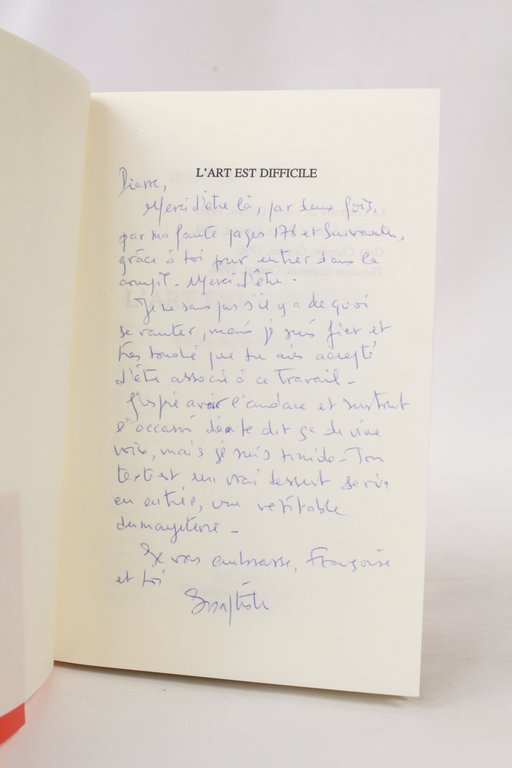 L'ART EST DIFFICILE
Pierre,
Merci d'être là, par deux fois,
par ma faute pages 176 et suivantes,
grâce à toi pour entrer dans la
Merci d'être.
Je ne sais pas s'il y a de quoi
se vanter, mais je suis fier et
très touché que tu aies accepté
d'être associé à ce travail –
J'espère avoir l'audace et surtout
l'occasion de te dit ça de vive
voix, mais je suis timide – Ton
texte est un vrai dessert servi
en entrée, une véritable
–
Je vous embrasse, Françoise
et toi
Baptiste